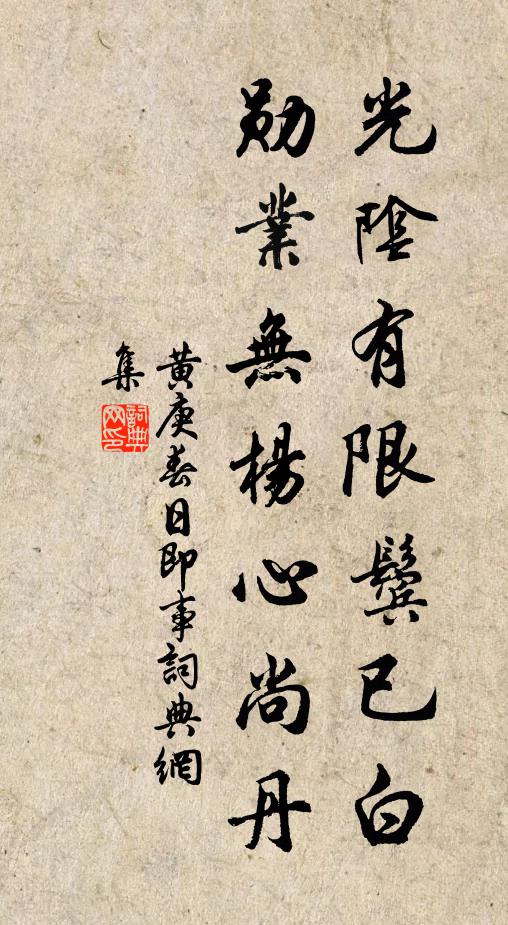 光陰有限鬢已白
勛業無楊心尚丹
黄庚春日即事詞典網
集
詞典
网印